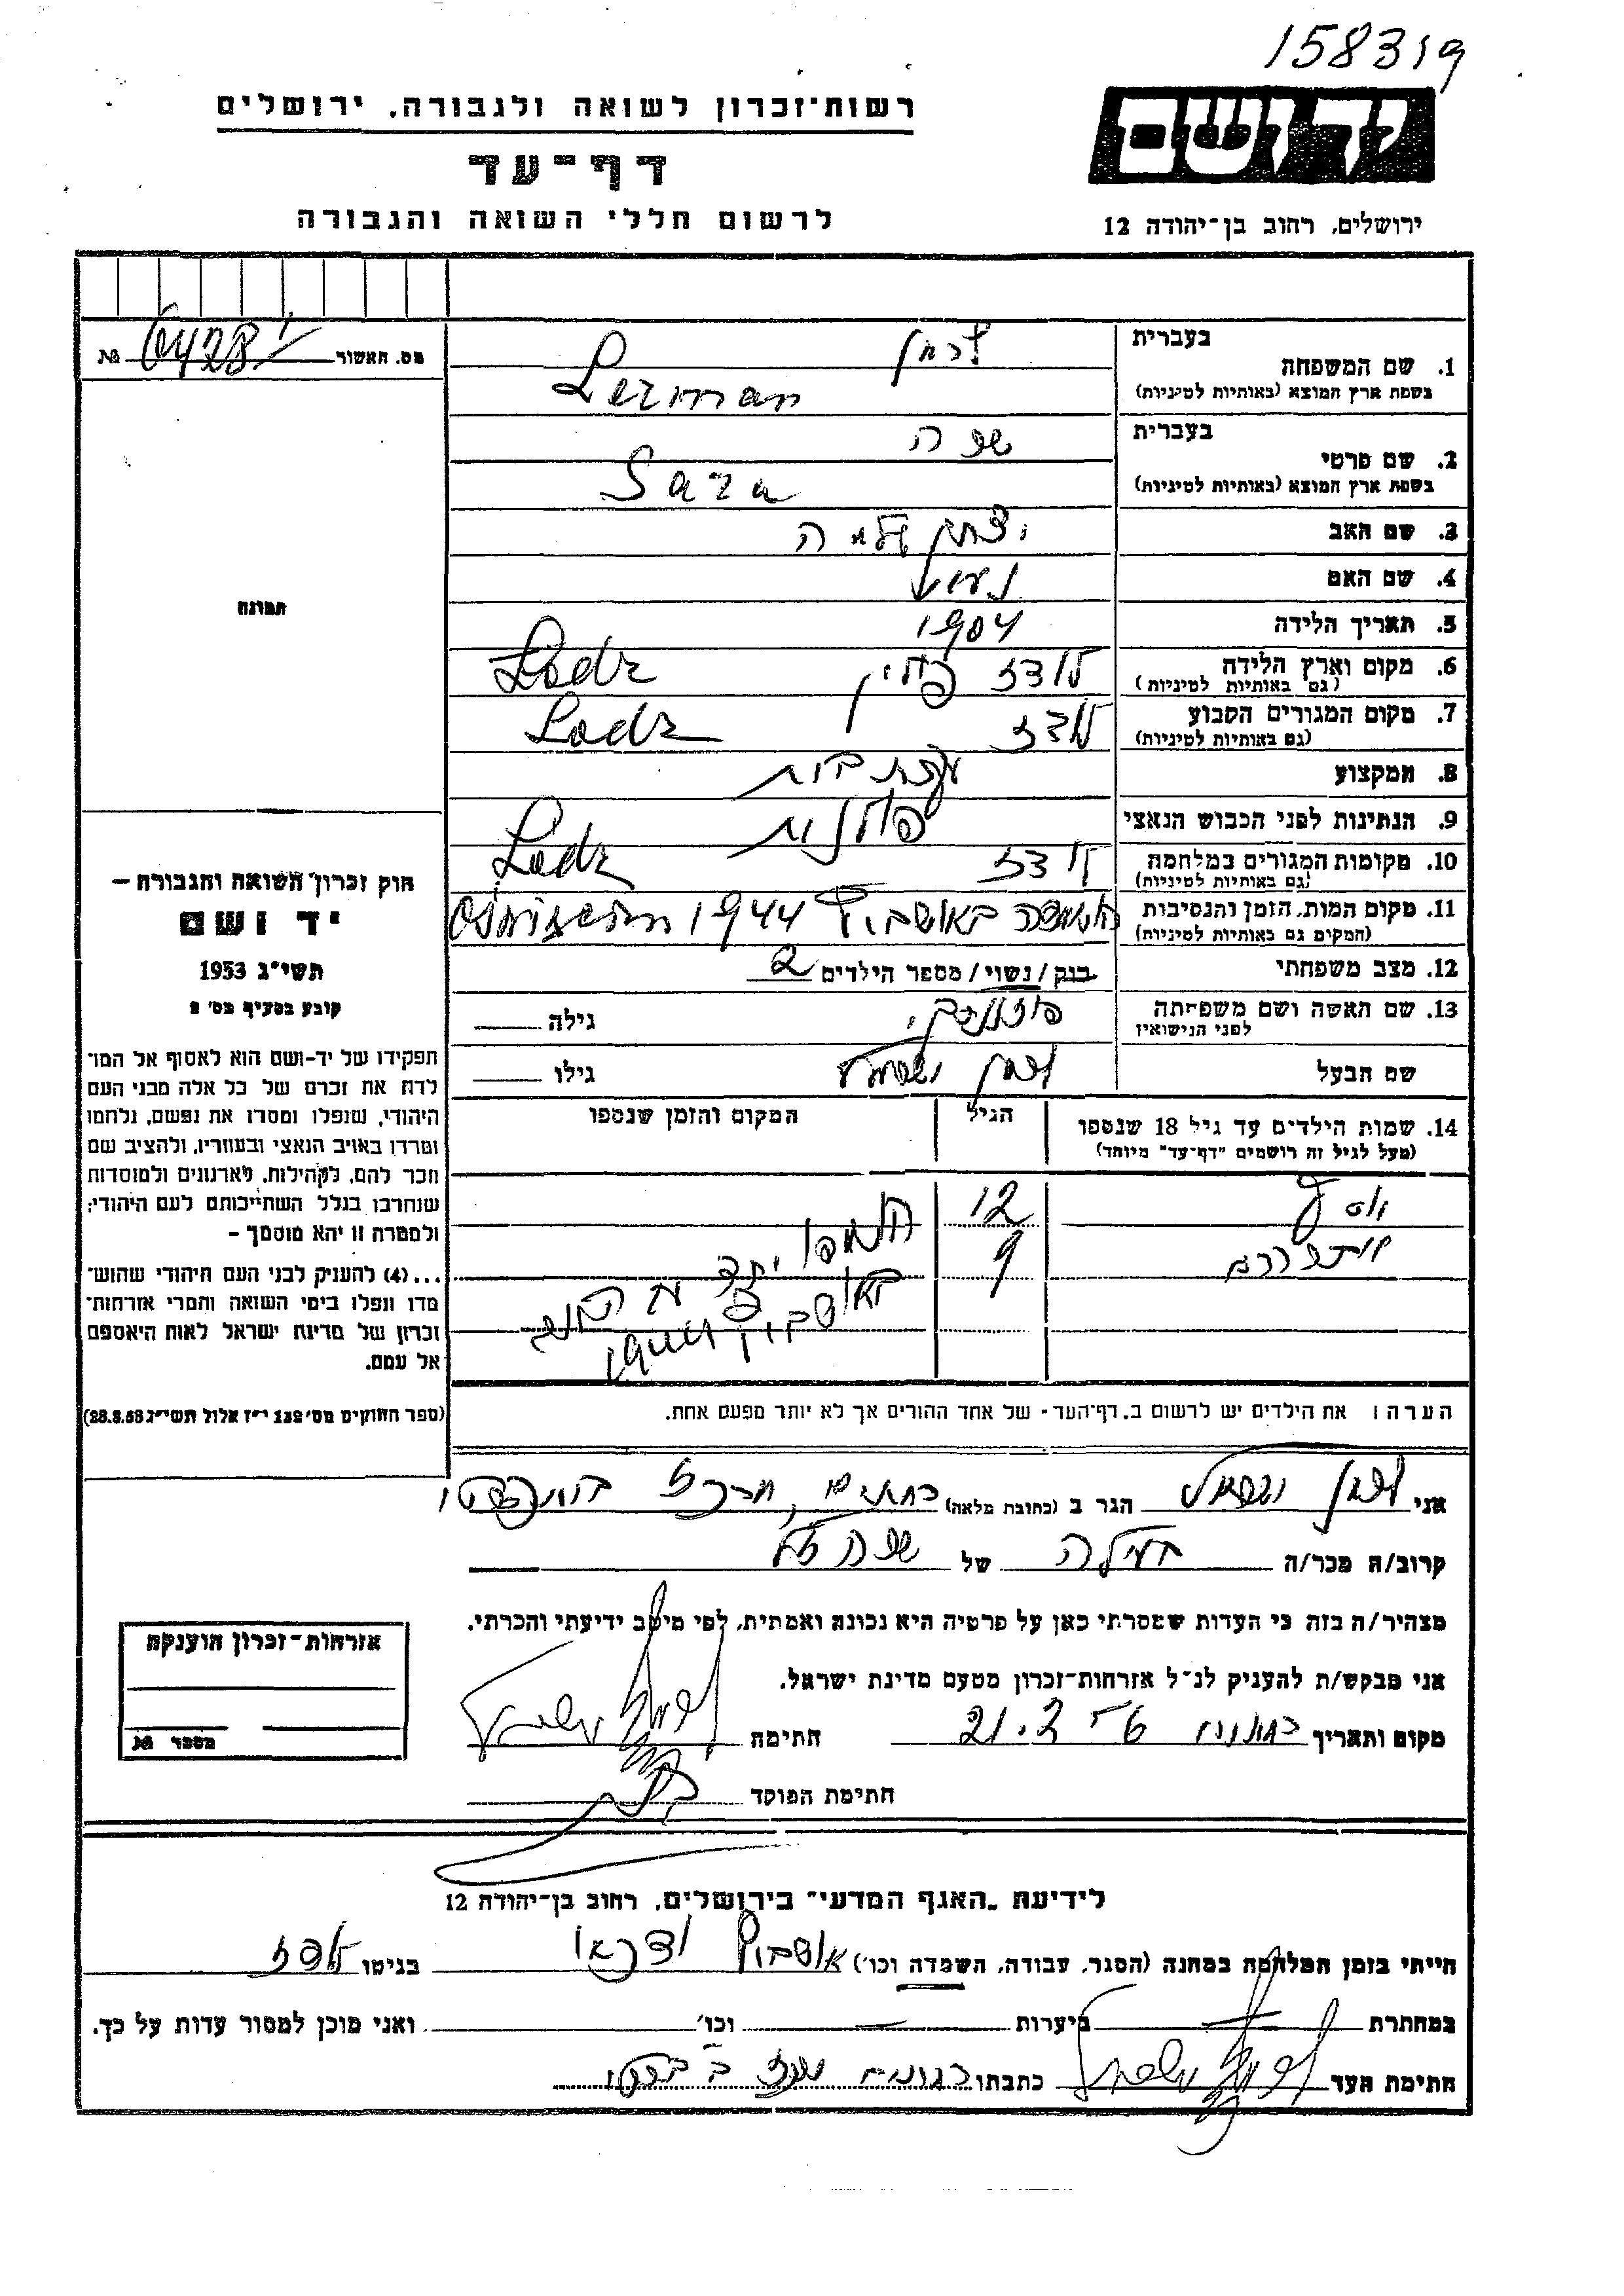 158319
רשות־זכרון לשואה ולגבורה, ירושלים
יד ושם
דף־עד
לרשום חללי השואה והגבורה
ירושלים, רחוב בן־יהודה 12
מס. האשור № 6428
בעברית לרמן
1. שם המשפחה
בשפת ארץ המוצא (באותיות לטיניות) Lerman
בעברית שרה
2. שם פרטי
בשפת ארץ המוצא (באותיות לטיניות) Sara
3. שם האב
4. שם האם
5. תאריך הלידה 1904
6. מקום וארץ הלידה לודז פולין Lodz
(גם באותיות לטיניות)
7. מקום המגורים הקבוע לודז Lodz
(גם באותיות לטיניות)
8. המקצוע עקרת בית
9. הנתינות לפני הכבוש הנאצי פולנית
10. מקומות המגורים במלחמה לודז Lodz
(גם באותיות לטיניות)
11. מקום המות, הזמן והנסיבות באושביץ 1944
(המקום גם באותיות לטיניות)
12. מצב משפחתי רווק / נשוי / מספר הילדים 2
13. שם האשה ושם משפחתה גילה
לפני הנישואין
שם הבעל לרמן גילו
14. שמות הילדים עד גיל 18 שנספו הגיל המקום והזמן שנספו
(מעל לגיל זה רושמים "דף־עד" מיוחד)
יוסף 12
9
יחד עם האם
באושביץ
הערה: את הילדים יש לרשום ב„דף־העד״ של אחד ההורים אך לא יותר מפעם אחת.
תמונה
חוק זכרון השואה והגבורה –
יד ושם
תשי״ג 1953
קובע בסעיף מס׳ 2
תפקידו של יד־ושם הוא לאסוף אל המו־
לדת את זכרם של כל אלה מבני העם
היהודי, שנפלו ומסרו את נפשם, נלחמו
ומרדו באויב הנאצי ובעוזריו, ולהציב שם
וזכר להם, לקהילות, לארגונים ולמוסדות
שנחרבו בגלל השתייכותם לעם היהודי;
ולמטרה זו יהא מוסמך –
...(4) להעניק לבני העם היהודי שהוש־
מדו ונפלו בימי השואה והמרי אזרחות־
זכרון של מדינת ישראל לאות היאספם
אל עמם.
(ספר החוקים מס׳ 132 י״ז אלול תשי״ג 28.8.53)
אני לרמן הגר ב (כתובת מלאה)
קרוב/ה מכר/ה של שרה ז״ל
מצהיר/ה בזה כי העדות שמסרתי כאן על פרטיה היא נכונה ואמתית, לפי מיטב ידיעתי והכרתי.
אני מבקש/ת להעניק לנ״ל אזרחות־זכרון מטעם מדינת ישראל.
מקום ותאריך חתימה
חתימת הפוקד
אזרחות־זכרון הוענקה
מספר №
לידיעת „האגף המדעי״ בירושלים, רחוב בן־יהודה 12
הייתי בזמן המלחמה במחנה (הסגר, עבודה, השמדה וכו׳) אושביץ ודכאו בגיטו לודז
במחתרת — ביערות — וכו׳ — ואני מוכן למסור עדות על כך.
חתימת העד כתבתו